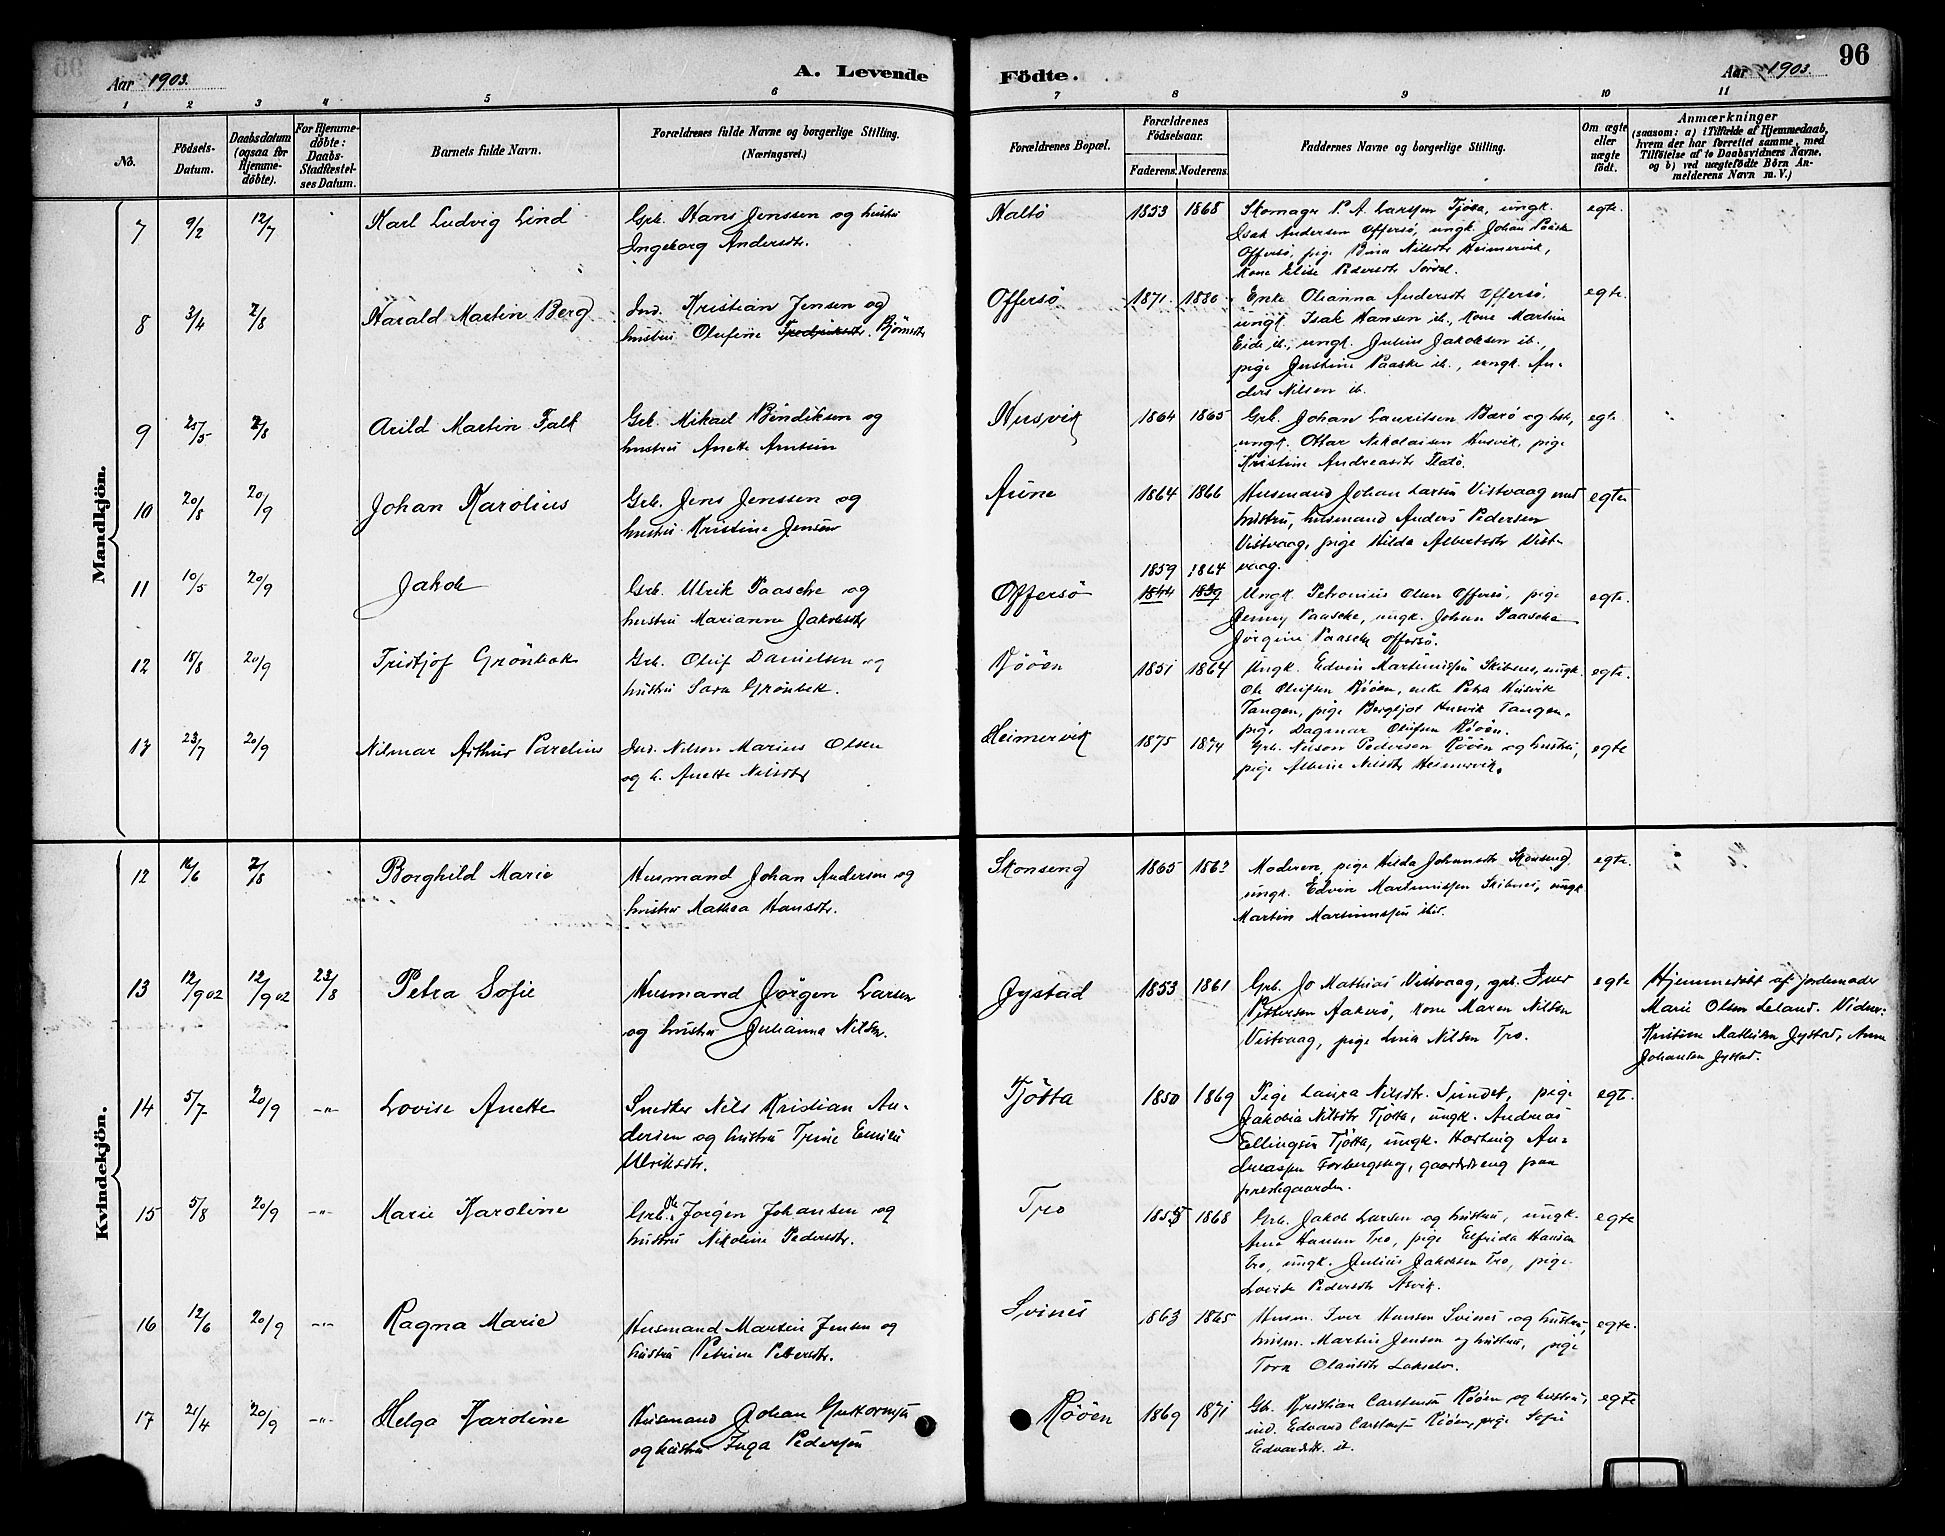 Aar 1903.
A. Levende
Fødte.
Aar 1903.
96
1 2 3 4 5 6 7 8 9 10 11
No.
Fødsels-Datum.
Daabsdatum (ogsaa for Hjemme-døbte).
For Hjemme-døbte: Daabs-Stadfæstel-ses Datum.
Barnets fulde Navn.
Forældrenes fulde Navne og borgerlige Stilling.
(Næringsvei.)
Forældrenes Bopæl.
Forældrenes Fødselsaar.
Faderens. Moderens.
Faddernes Navne og borgerlige Stilling.
Om ægte eller uægte født.
Anmærkninger
(saasom: a) i Tilfælde af Hjemmedaab,
hvem der har forrettet samme, med
Tilføielse af to Daabsvidners Navne.
og b) ved uægtefødte Børn An-
melderens Navn m. V.)
Mandkjøn.
7 9/2 12/7 Karl Ludvig Lind Grb. Hans Jenssen og hustru Naltø 1853 1868 Skomager P. A. Larssen Tjøtta, ungk. egte.
Ingeborg Andersdtr. Isak Andersen Offersø, ungk. Johan Paaske
Offersø, pige Bina Nilsdtr Heimervik,
Kone Elise Pedersdtr
8 3/4 2/8 Harald Martin Berg Ind. Kristian Jensen og Offersø 1871. 1880 Enke Olianna Andersdtr Offersø, egte.
hustru Olufine Bjørnsdtr ungk. Isak Hansen ib., Kone Martine
Eide ib., ungk. Julius Jakobsen ib.,
pige Justine Paaske ib., ungk. An-
ders Nilsen ib.
9 25/5 2/8 Arild Martin Falk Grb. Mikael Bendiksen og Husvik 1864 1865 Grb. Johan Lauritsen Barø og hst, egte
hustru Anette ungk. Ottar Nikolaisen Husvik, pige
Kristine Andreasdtr Flatø.
10 20/8 20/9 Johan Karolius Grb. Jens Jenssen og Aune 1864 1866 Husmand Johan Larsen Vistvaag med egte
hustru Kristine Jensen hustru, husmand Anders Pedersen
Vistvaag, pige Hilda Albertsdtr Vist-
1859 1864 vaag.
11 10/5 20/9 Jakob Grb. Ulrik Paasche og Offersø 1844 1839 Ungk. Petronius Olsen Offersø, pige egte.
hustru Marianne Jakobsdtr Jenny Paasche, ungk. Johan Paasche
Jørgine Paasche Offersø.
12 18/8 20/9 Fristjof Grønbek Grb. Oluf Danielsen og Røøen 1851 1864 Ungk. Edvin Martinussen Skibnes, ungk. egte.
hustru Sara Grønbek. Ole Olufsen Røøen, enke Petra Husvik
Tangen, pige Bergljot Husvik Tangen,
pige Dagmar Olufsen Røøen.
13 23/7 20/9 Nilmar Arthur Parelius Ind. Nilson Marius Olsen Heimervik 1875 1874 Grb. Nilson Pedersen Røøen og hustru, egte
og h. Anette Nilsdtr pige Albine Nilsdtr Heimervik.
Kvindekjøn.
12 16/6 2/8 Borghild Marie Husmand Johan Andersen og Skonseng 1865 1863 Moderen, pige Hilda Johansdtr Skonseng, egte.
hustru Mathea Hansdtr. ungk. Edvin Martinussen Skibnes, ungk
Martin Martinussen ibid.
13 12/9 02 12/9 02 23/8 Petra Sofie Husmand Jørgen Larsen Jystad 1853 1861 Grb. Jo Mathias Vistvaag, grb. Iver egte Hjemmedøbt af jordemoder
og hustru Julianna Nilsen. Pettersen Aakerø, Kone Maren Nilsen Marie Olsen Leland. Vidner:
Vistvaag, pige Lina Nilsen Tro. Kristine Mathisen Jystad, Anne
Johansen Jystad.
14 5/7 20/9 -"- Lovise Anette Snedker Nils Kristian An- Tjøtta 1850 1869 Pige Laura Nilsdtr. Sundet, pige egt.
dersen og hustru Trine Emilie Jakobia Nilsdtr Tjøtta, ungk. Andreas
Ulriksdtr. Ellingsen Tjøtta, ungk. Hartvig An-
dreassen Forbergskog, gaardsdreng paa
prestegaarden.
15 5/8 20/9 -"- Marie Karoline Grb. Ole Jørgen Johansen og Tro 1855 1868 Grb. Jakob Larsen og hustru, ungk. egte
hustru Nikoline Pedersdtr. Arne Hansen Tro, pige Elfrida Hansen
Tro, ungk. Julius Jakobsen Tro, pige
Lovise Pedersdtr Asvik.
16 12/6 20/9 -"- Ragna Marie Husmand Martin Jensen og Svines 1863 1865 Husm. Iver Hansen Svines og hustru, egte.
hustru Petrine Pettersdtr. husm. Martin Jensen og hustru, pige
Tora Olausdtr Lakselv.
17 21/4 20/9 -"- Helga Karoline Husmand Johan Guttormsen Røøen 1869 1871 Gb. Kristian Carstensen Røøen og hustru, egte
og hustru Inga Pedersen ind. Edvard Carstensen Røøen, pige Sofie
Edvardsdtr. ib.